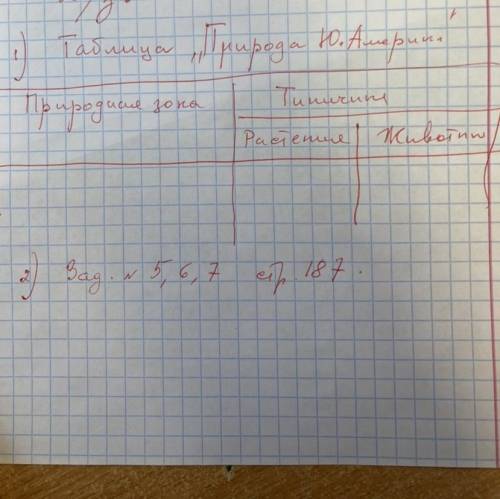 1) Таблица „Природа Ю. Америки"
Природная зона
Типичные
Растения
Животные
2) Зад. № 5, 6, 7 стр. 187.